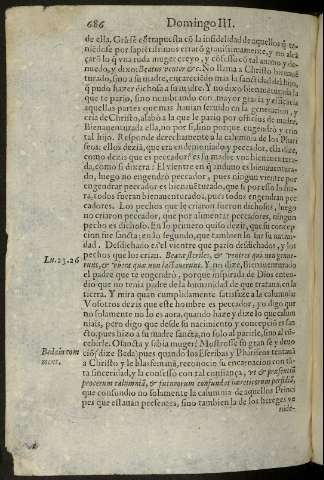 686 Domingo III.
de ella. Grãde cõtraposta cõ la infidelidad de aquellos q̃ te
niēdose por sapiētissimos erraró grauissimamente, y no alcã
çaró lo q̃ vna ruda muger creyo, y cófesso có tal animo y de-
nuedo, y dixo: Beatus venter &c. No llama a Christo bienauē
turado, sino a su madre, encareciēdo mas la santidad del hijo,
q̃ pudo hazer dichosa a su madre. Y no dixo bienauenturada la
que te pario, sino nombrando con mayor gracia y eficacia
aquellas partes que mas hauian seruido en la generacion, y
cria de Christo, alabó a la que le pario por officios de madre.
Bienauenturada ella, no por si, sino porque engendrò y crio
tal hijo. Responde derechamente a la calumnia de los Phari
seos: ellos dezià, que era endemoniado y peccador, ella dize,
como dezis que es peccador? es su madre vna bienauentura-
da, como si dixera: El vientre en q̃ anduuo es bienauentura-
do, luego no engendrò peccador, pues ningun vientre por
engendrar peccador es bienauēturado, que si por esso lo fue-
ra, todos fueran bienauenturados, pues todos engendran pec
cadores. Los pechos que le criaron fueron dichosos, luego
no criaron peccador, que por alimentar peccadores, ningun
pecho es dichoso. En lo primero quiso dezir, que su concep-
cion fue sancta: en lo segundo, que tambien lo fue su natiui-
dad. Desdichado es el vientre que pario desdichados, y los
pechos que los crian. Beatæ steriles, & ventres qui non genue-
Lu. 23. 26 runt, & vbera quæ non lactauerunt. Y no dixe, bienauenturado
el padre que te engendrò, porque inspirada de Dios enten-
dio que no tenia padre de la humanidad de que trataua, en la
tierra. Y mira quan cumplidamente satisfaze a la calumnia:
Vosotros dezis que este hombre es peccador, yo digo que
no solamente no lo es aora, quando haze y dize lo que calum
niais, pero digo que desde su nacimiento y concepció es san
cto: pues hizo a su madre sancta, no solo al parirle, sino al có-
cebirle. O sancta y sabia muger! Mostrosse su gran fe y deuo
Beda in com ció (dize Beda) pues quando los Escribas y Phariseos tentauā
ment. a Christo y le blasfemauā, reconocio su encarnacion con tā
ta sinceridad, y la confessò con tal confiança, vt & præsentiũ
procerum calumniã, & futurorum confundat hæreticorum perfidiã,
que confundio no solamente la calumnia de aquellos Princi
pes que estauan presentes, sino tambien la de los hereges ve
nide-